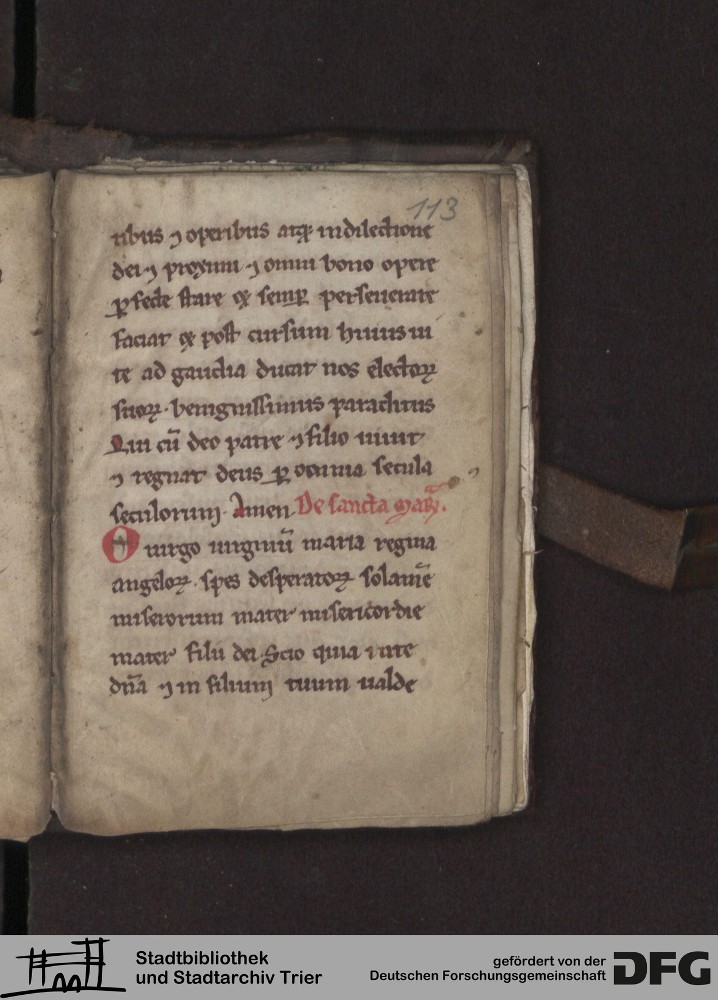 113
tibus ⁊ operibus atqꝫ in dilectione
dei ⁊ proximi ⁊ omni bono opere
ꝑfecte stare ⁊ semꝑ perseuerare
faciat ⁊ post cursum huius ui
te ad gaudia ducat nos electoꝝ
suoꝝ. benignissimus paraclitus
Qui cū deo patre ⁊ filio uiuit
⁊ regnat deus ꝑ omnia secula
seculorum. Amen. De sancta mar̄.
O uirgo uirginū maria regina
angeloꝝ. spes desperatoꝝ solamē
miserorum mater misericordie
mater filii dei. Scio quia in te
dn̄a ⁊ in filium tuum ualde
Stadtbibliothek
und Stadtarchiv Trier
gefördert von der
Deutschen Forschungsgemeinschaft
DFG